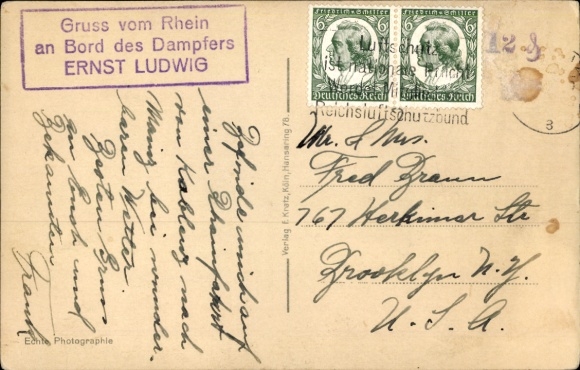 Gruss vom Rhein
an Bord des Dampfers
ERNST LUDWIG
Friedrich v. Schiller
6
Deutsches Reich
Friedrich v. Schiller
6
Deutsches Reich
Luftschutz
ist nationale Pflicht
Werdet Mitglied
Reichsluftschutzbund
Befinde mich auf
einer Rheinfahrt
von Koblenz nach
Mainz bei wunder-
barem Wetter.
Besten Gruss
an Euch und
Bekannten
Frank
Echte Photographie
Verlag f. Kratz, Köln, Hansaring 78.
Mr. & Mrs.
Fred Braun
767 Herkimer Str
Brooklyn N.Y.
U.S.A.
8